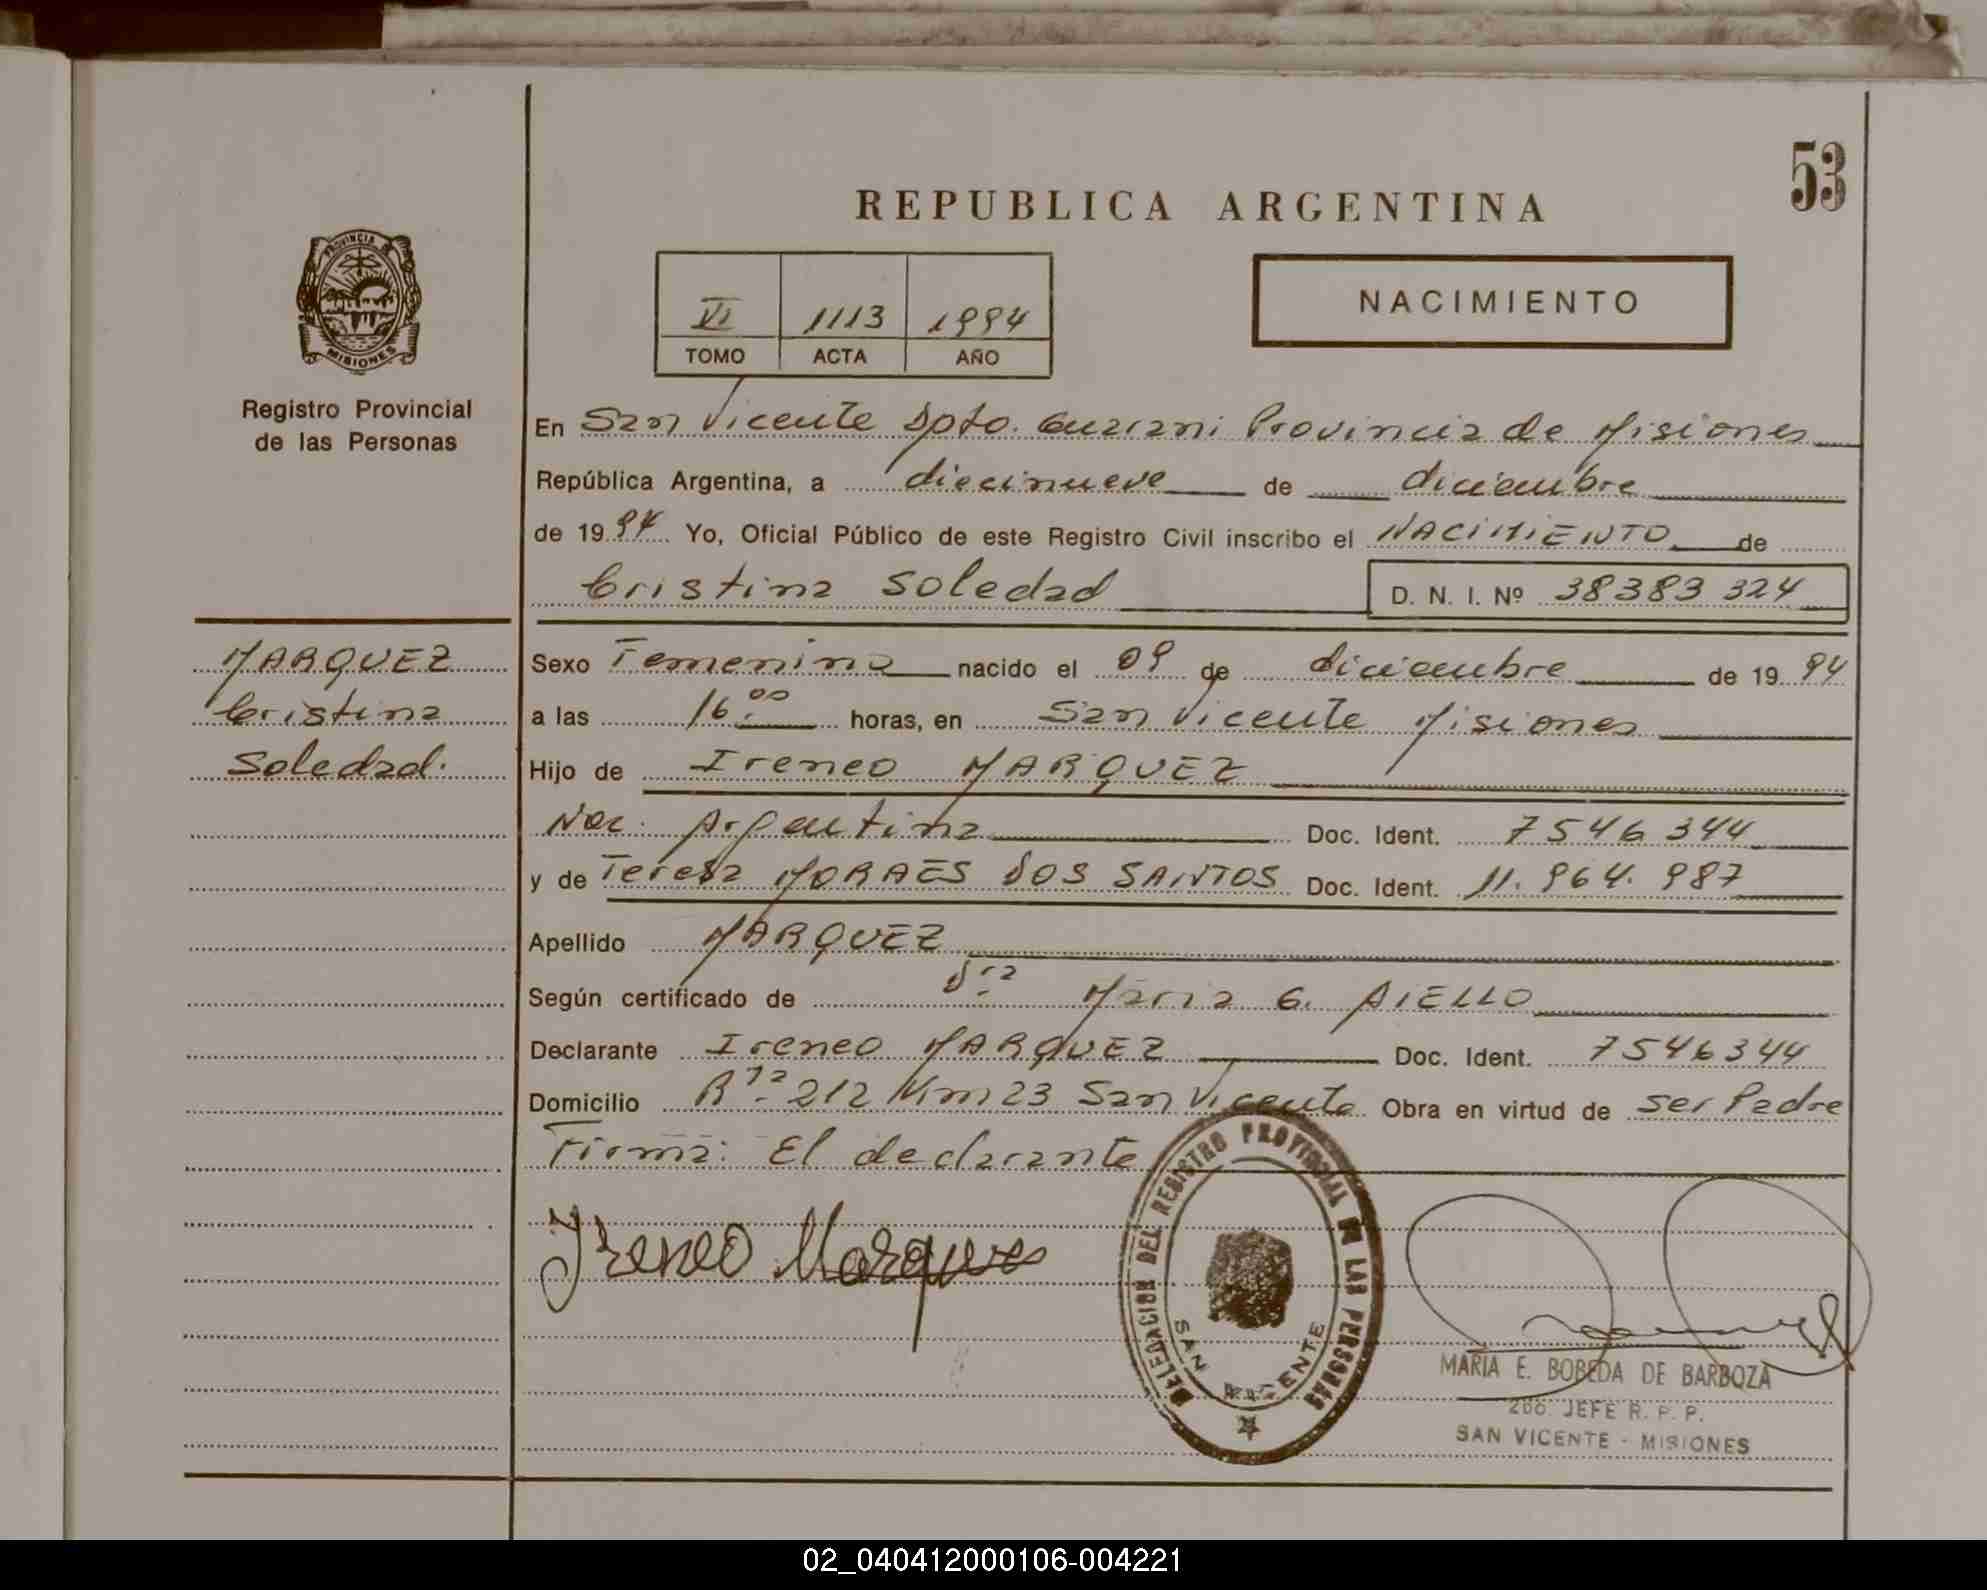 53
REPUBLICA ARGENTINA
PROVINCIA DE
MISIONES
Registro Provincial
de las Personas
VI 1113 1994
TOMO ACTA AÑO
NACIMIENTO
En San Vicente Dpto. Guarani Provincia de Misiones
República Argentina, a diecinueve de diciembre
de 1994 Yo, Oficial Público de este Registro Civil inscribo el NACIMIENTO de
Cristina Soledad D. N. I. Nº 38383 324
MARQUEZ
Cristina
Soledad.
Sexo Femenina nacido el 09 de diciembre de 1994
a las 16.00 horas, en San Vicente Misiones
Hijo de Ireneo MARQUEZ
Nac. Argentina Doc. Ident. 7546344
y de Teresa MORAES DOS SANTOS Doc. Ident. 11.964.987
Apellido MARQUEZ
Según certificado de Dra Maria G. AIELLO
Declarante Ireneo MARQUEZ Doc. Ident. 7546344
Domicilio Rta. 212 Km 23 San Vicente Obra en virtud de ser Padre
Firma: El declarante
Ireneo Marques
DELEGACION DEL REGISTRO PROVINCIAL DE LAS PERSONAS
SAN VICENTE
MARIA E. BOBEDA DE BARBOZA
2do. JEFE R. P. P.
SAN VICENTE - MISIONES
02_040412000106-004221